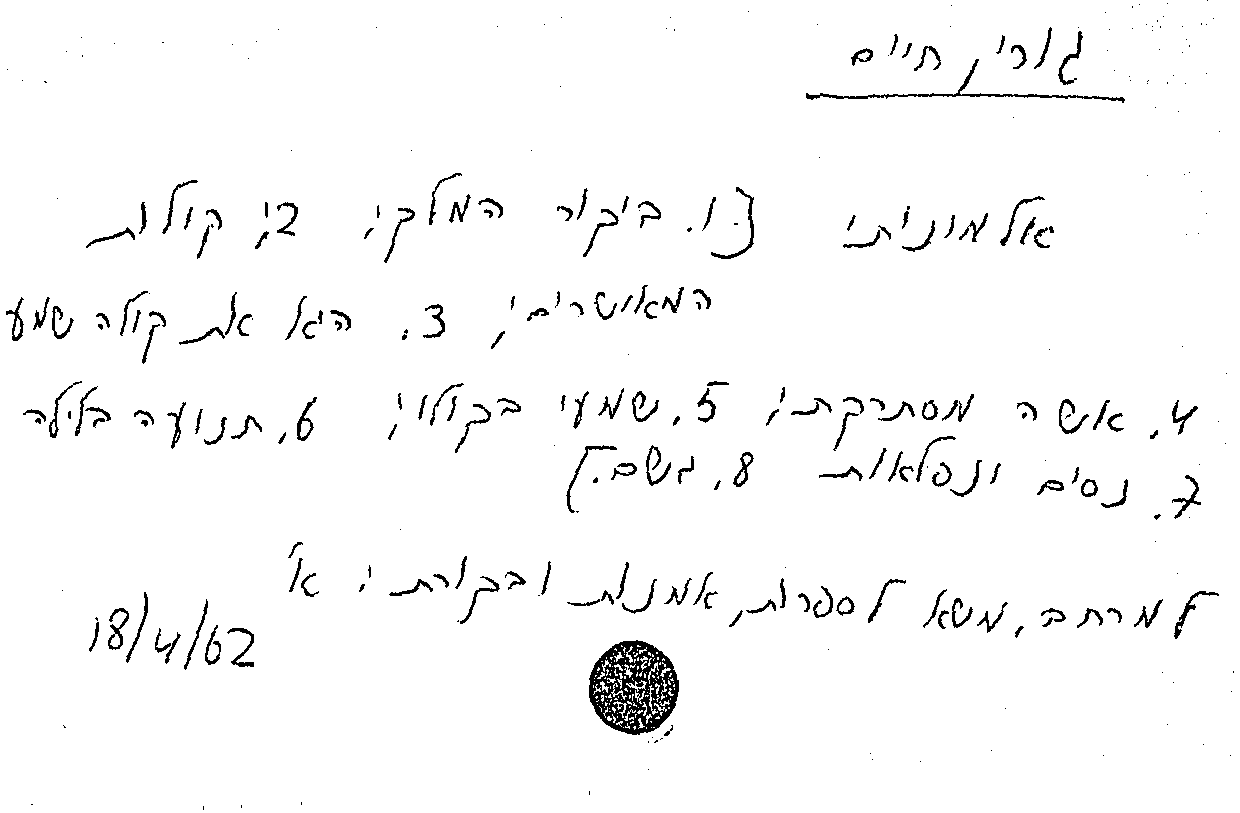 גורי, חיים
אלמוניתי [1. ביקור המלך; 2; קולות
המאושרים; 3. היא את קולה שמע
4. אשה מסתרקת; 5. שמעי בקולי; 6. תנועה בלילה
7. נסים ונפלאות 8. גשם.]
למרחב, משא לספרות, אמנות ובקורת; א'
18/4/62